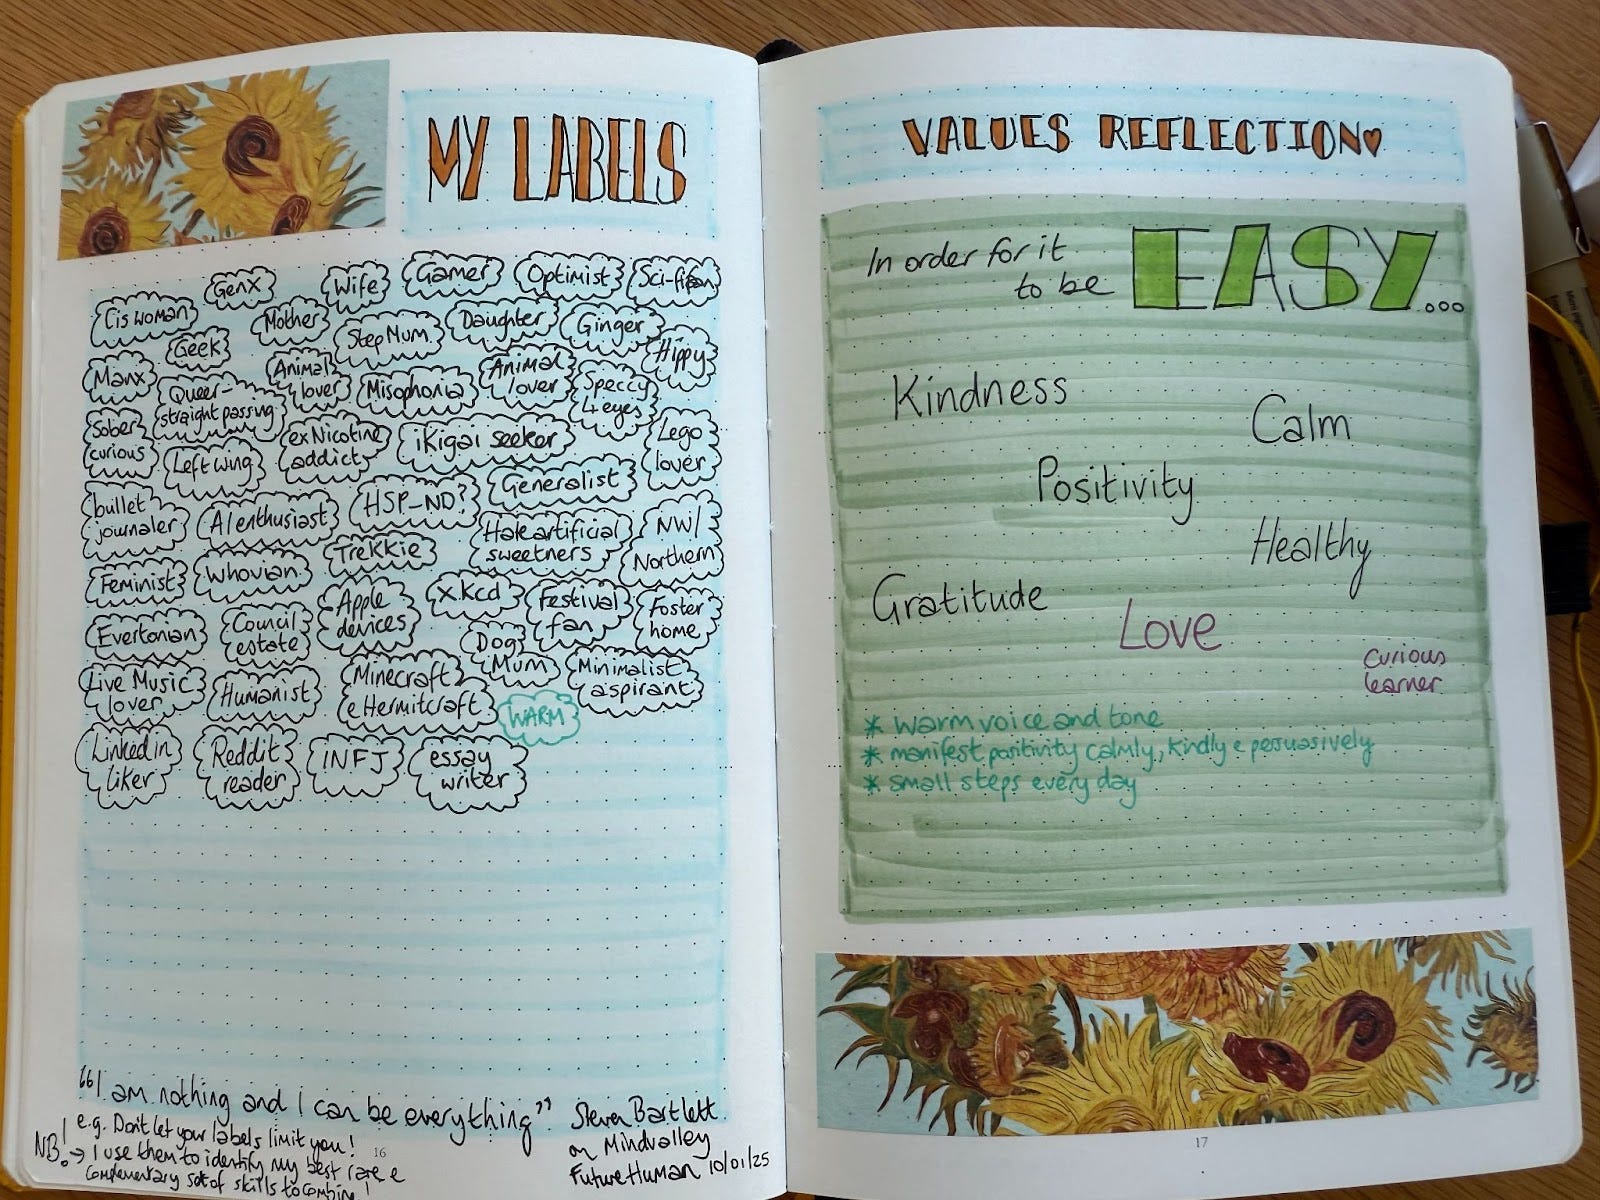 MY LABELS
GenX
Wife
Gamer
Optimist
Sci-fi fan
Cis woman
Mother
Step Mum
Daughter
Ginger
Geek
Hippy
Manx
Animal
lover
Misophonia
Animal
lover
Speccy
4 eyes
Queer-
straight passing
Sober
curious
exNicotine
addict
iKigai seeker
Lego
lover
Left wing
Generalist
bullet
journaler
AI enthusiast
HSP-ND?
Hate artificial
sweetners
NW/
Northern
Trekkie
Feminist
Whovian
Apple
devices
xkcd
Festival
fan
Foster
home
Evertonian
Council
estate
Dog
Mum
Minimalist
aspirant
Live Music
lover
Humanist
Minecraft
e Hermitcraft
WARM
Linkedin
liker
Reddit
reader
INFJ
essay
writer
"I am nothing and I can be everything"
Steven Bartlett
on Mindvalley
FutureHuman 10/01/25
NB! e.g. Don't let your labels limit you!
→ I use them to identify my best rare e
complementary set of skills to combine!
16
VALUES REFLECTION
In order for it
to be EASY...
Kindness
Calm
Positivity
Healthy
Gratitude
Love
curious
learner
* warm voice and tone
* manifest positivity calmly, kindly e persuasively
* small steps every day
17